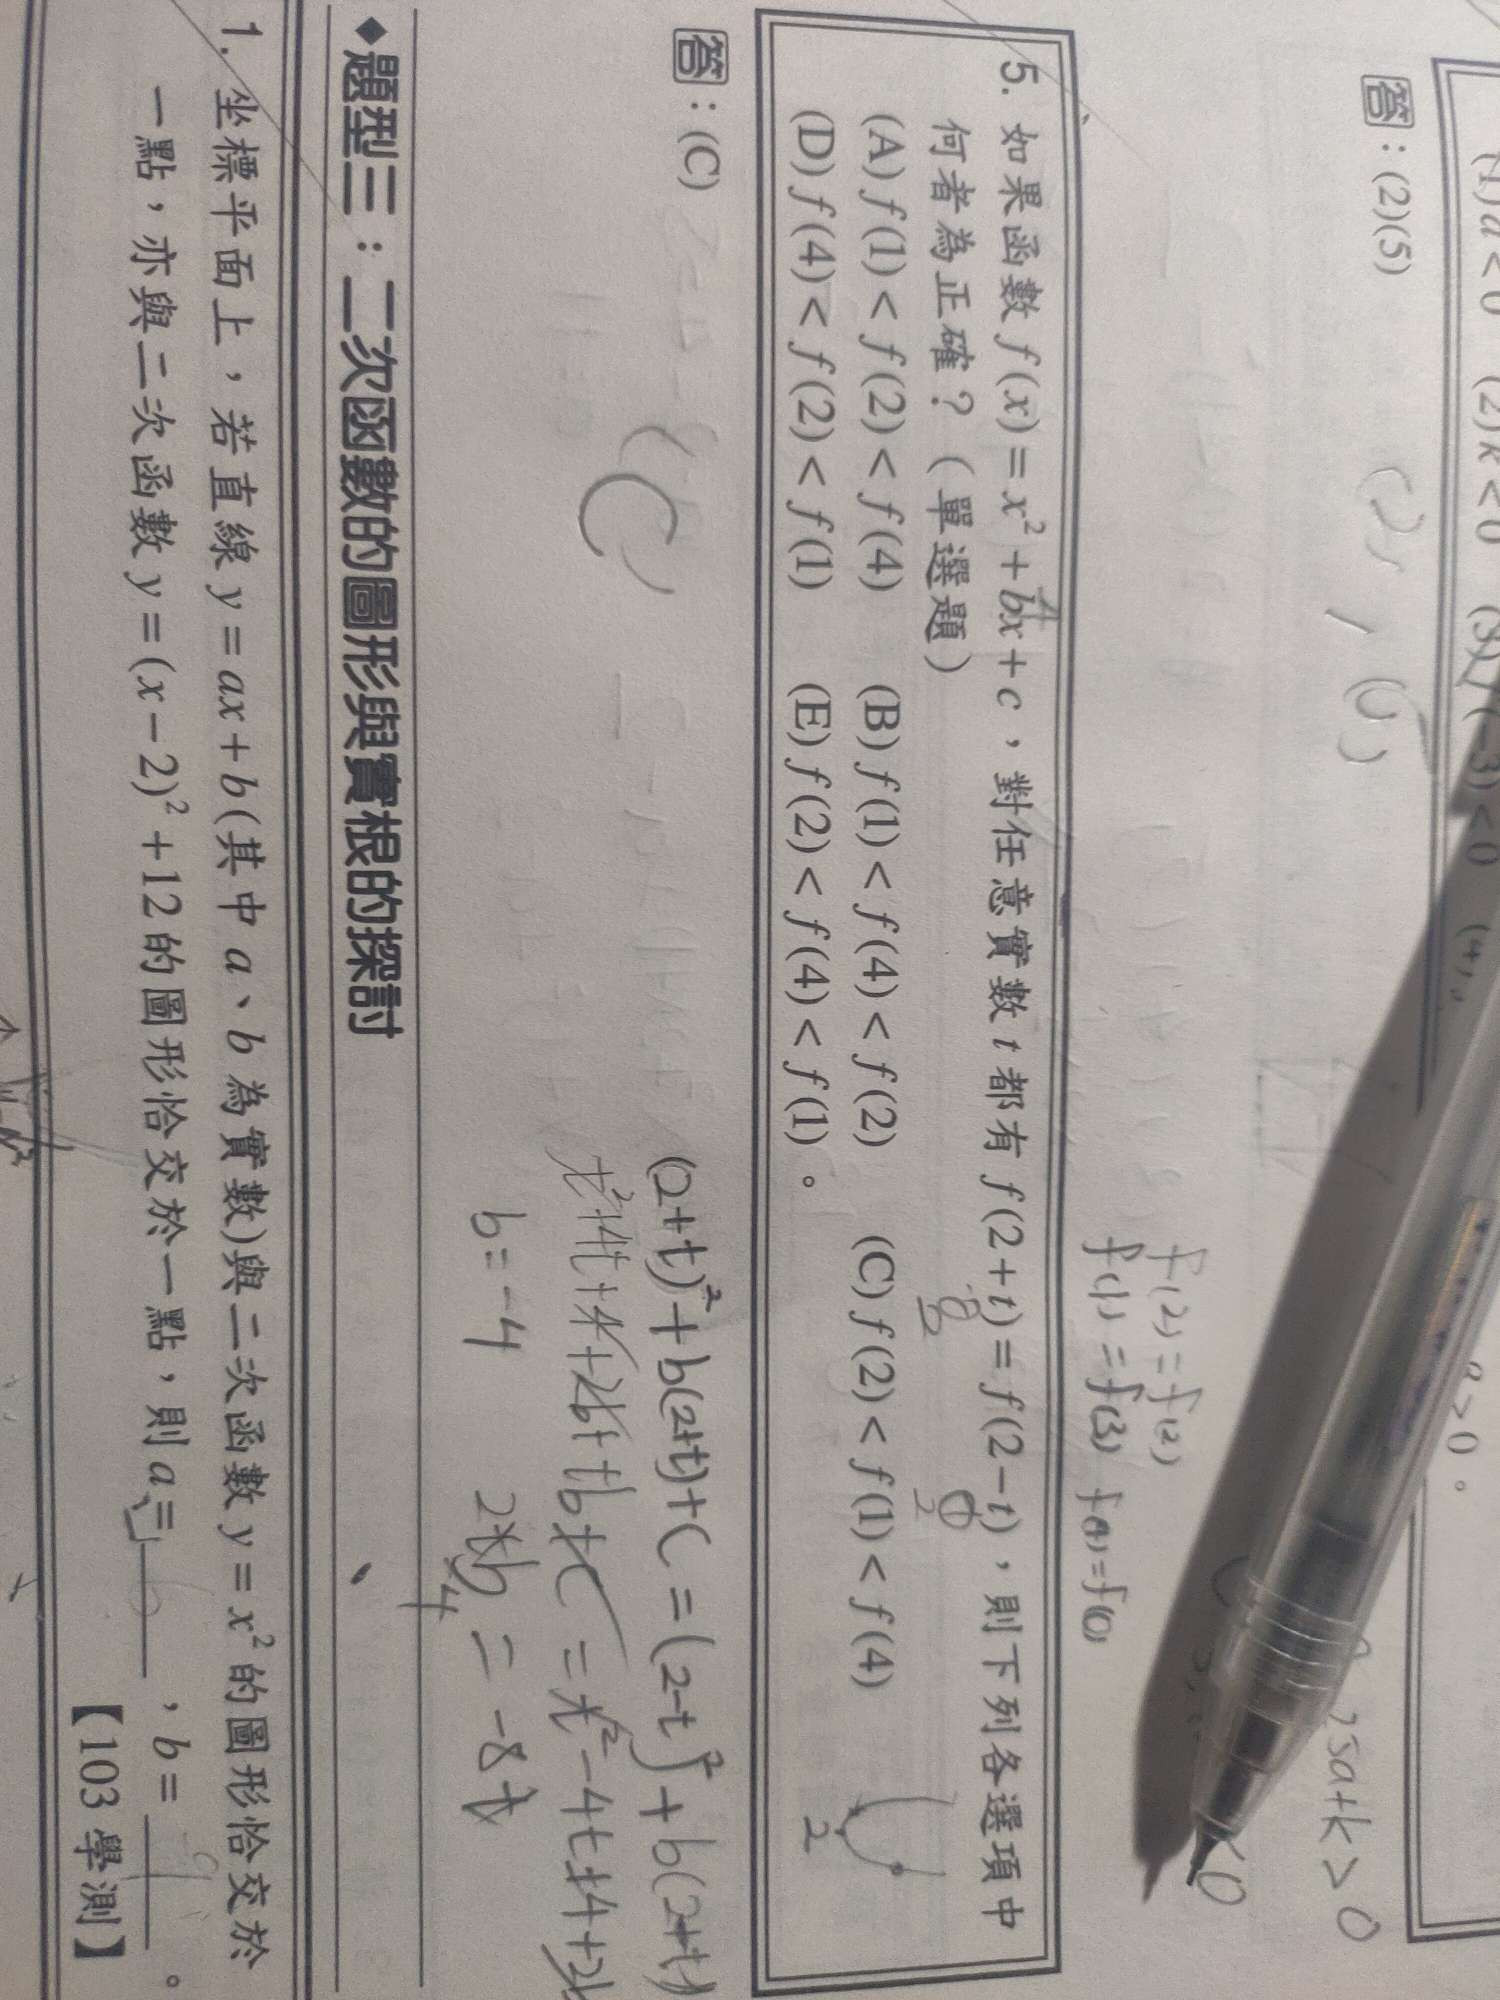 (1) a < 0 (2) k < 0
答：(2)(5)
f(2)=f(2)
f(1)=f(3) f(4)=f(0)
5. 如果函數 f(x)=x²+bx+c，對任意實數 t 都有 f(2+t)=f(2−t)，則下列各選項中
何者為正確？（單選題）
(A) f(1)<f(2)<f(4) (B) f(1)<f(4)<f(2) (C) f(2)<f(1)<f(4)
(D) f(4)<f(2)<f(1) (E) f(2)<f(4)<f(1)。
2
答：(C)
(2+t)²+b(2+t)+c=(2−t)²+b(2−t)
t²+4t+4+2b+tb+c=t²−4t+4+2b
b=−4
◆題型三：二次函數的圖形與實根的探討
1. 坐標平面上，若直線 y=ax+b(其中 a、b 為實數)與二次函數 y=x² 的圖形恰交於
一點，亦與二次函數 y=(x−2)²+12 的圖形恰交於一點，則 a= ，b= 。
【103 學測】